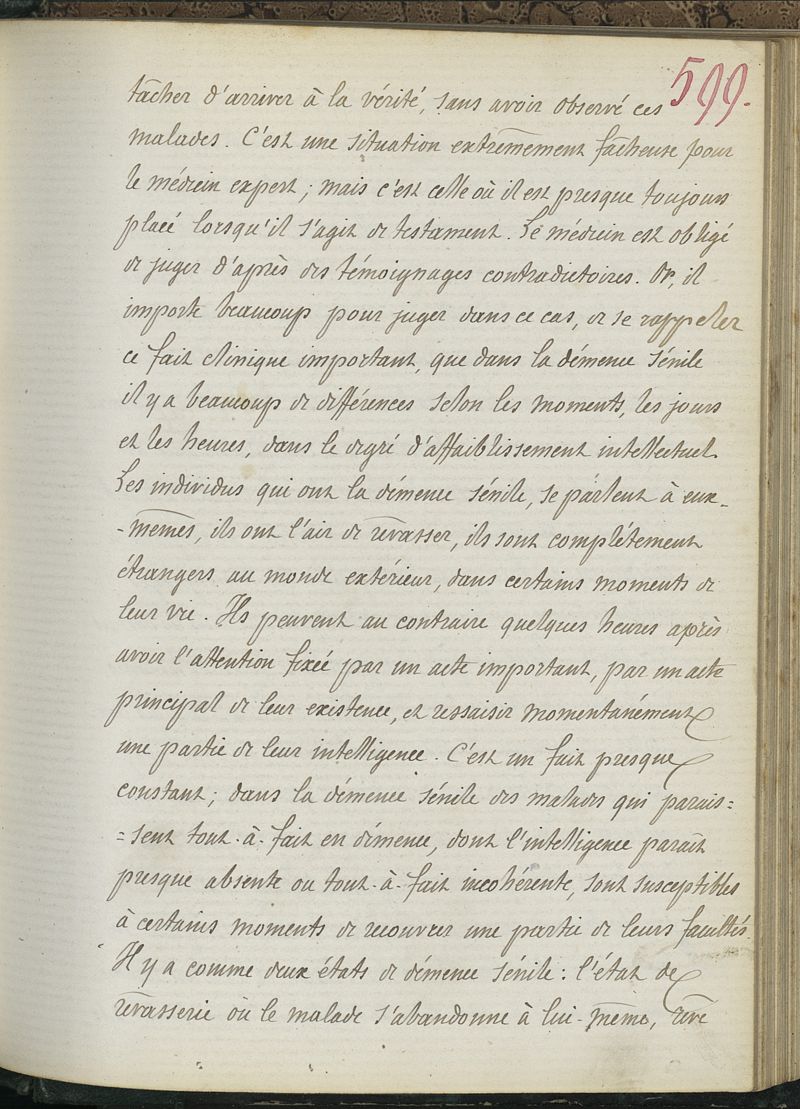 599.
tâcher d'arriver à la vérité, sans avoir observé ces
malades. C'est une situation extrêmement fâcheuse pour
le médecin expert; mais c'est celle où il est presque toujours
placé lorsqu'il s'agit de testament. Le médecin est obligé
de juger d'après des témoignages contradictoires. Or, il
importe beaucoup pour juger dans ce cas, de se rappeler
ce fait clinique important, que dans la démence sénile
il y a beaucoup de différences selon les moments, les jours
et les heures, dans le degré d'affaiblissement intellectuel.
Les individus qui ont la démence sénile, se parlent à eux-
-mêmes, ils ont l'air de rêvasser, ils sont complètement
étrangers au monde extérieur, dans certains moments de
leur vie. Ils peuvent au contraire quelques heures après
avoir l'attention fixée par un acte important, par un acte
principal de leur existence, et ressaisir momentanément
une partie de leur intelligence. C'est un fait presque
constant; dans la démence sénile des malades qui parais=
=sent tout-à-fait en démence, dont l'intelligence paraît
presque absente ou tout-à-fait incohérente, sont susceptibles
à certains moments de recouvrer une partie de leurs facultés.
Il y a comme deux états de démence sénile: l'état de
rêvasserie où le malade s'abandonne à lui-même, rêve